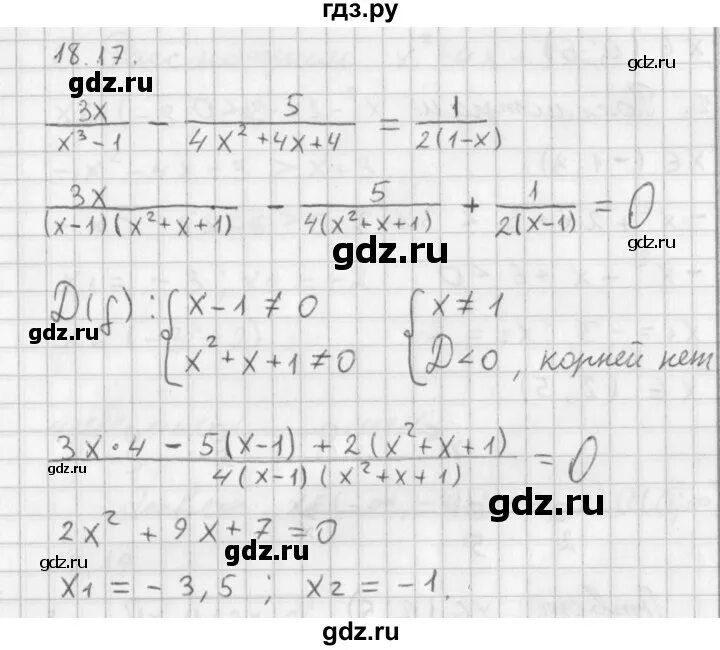 гдз.ру
18.17.
gdz.ru
gdz.ru
3x/(x³-1) - 5/(4x²+4x+4) = 1/(2(1-x))
3x/((x-1)(x²+x+1)) - 5/(4(x²+x+1)) + 1/(2(x-1)) = 0
gdz.ru
gdz.ru
D(f): { x-1≠0 { x≠1
gdz.ru
x²+x+1≠0 D<0, корней нет
(3x·4 - 5(x-1) + 2(x²+x+1))/(4(x-1)(x²+x+1)) = 0
gdz.ru
gdz.ru
2x² + 9x+7 = 0
gdz.ru
gdz.ru
x1 = -3,5 ; x2 = -1.
gdz.ru